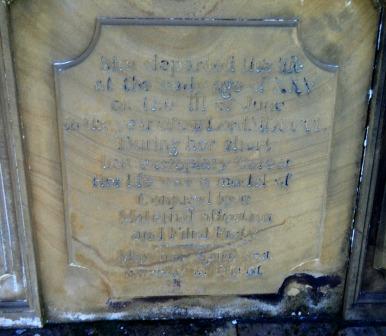 She departed this life
at the early age of XXV
on the III of June
in the year of our Lord
During her short
but exemplary Career
her life was a model of
Conjugal love
Maternal affection
and Filial Piety
May her